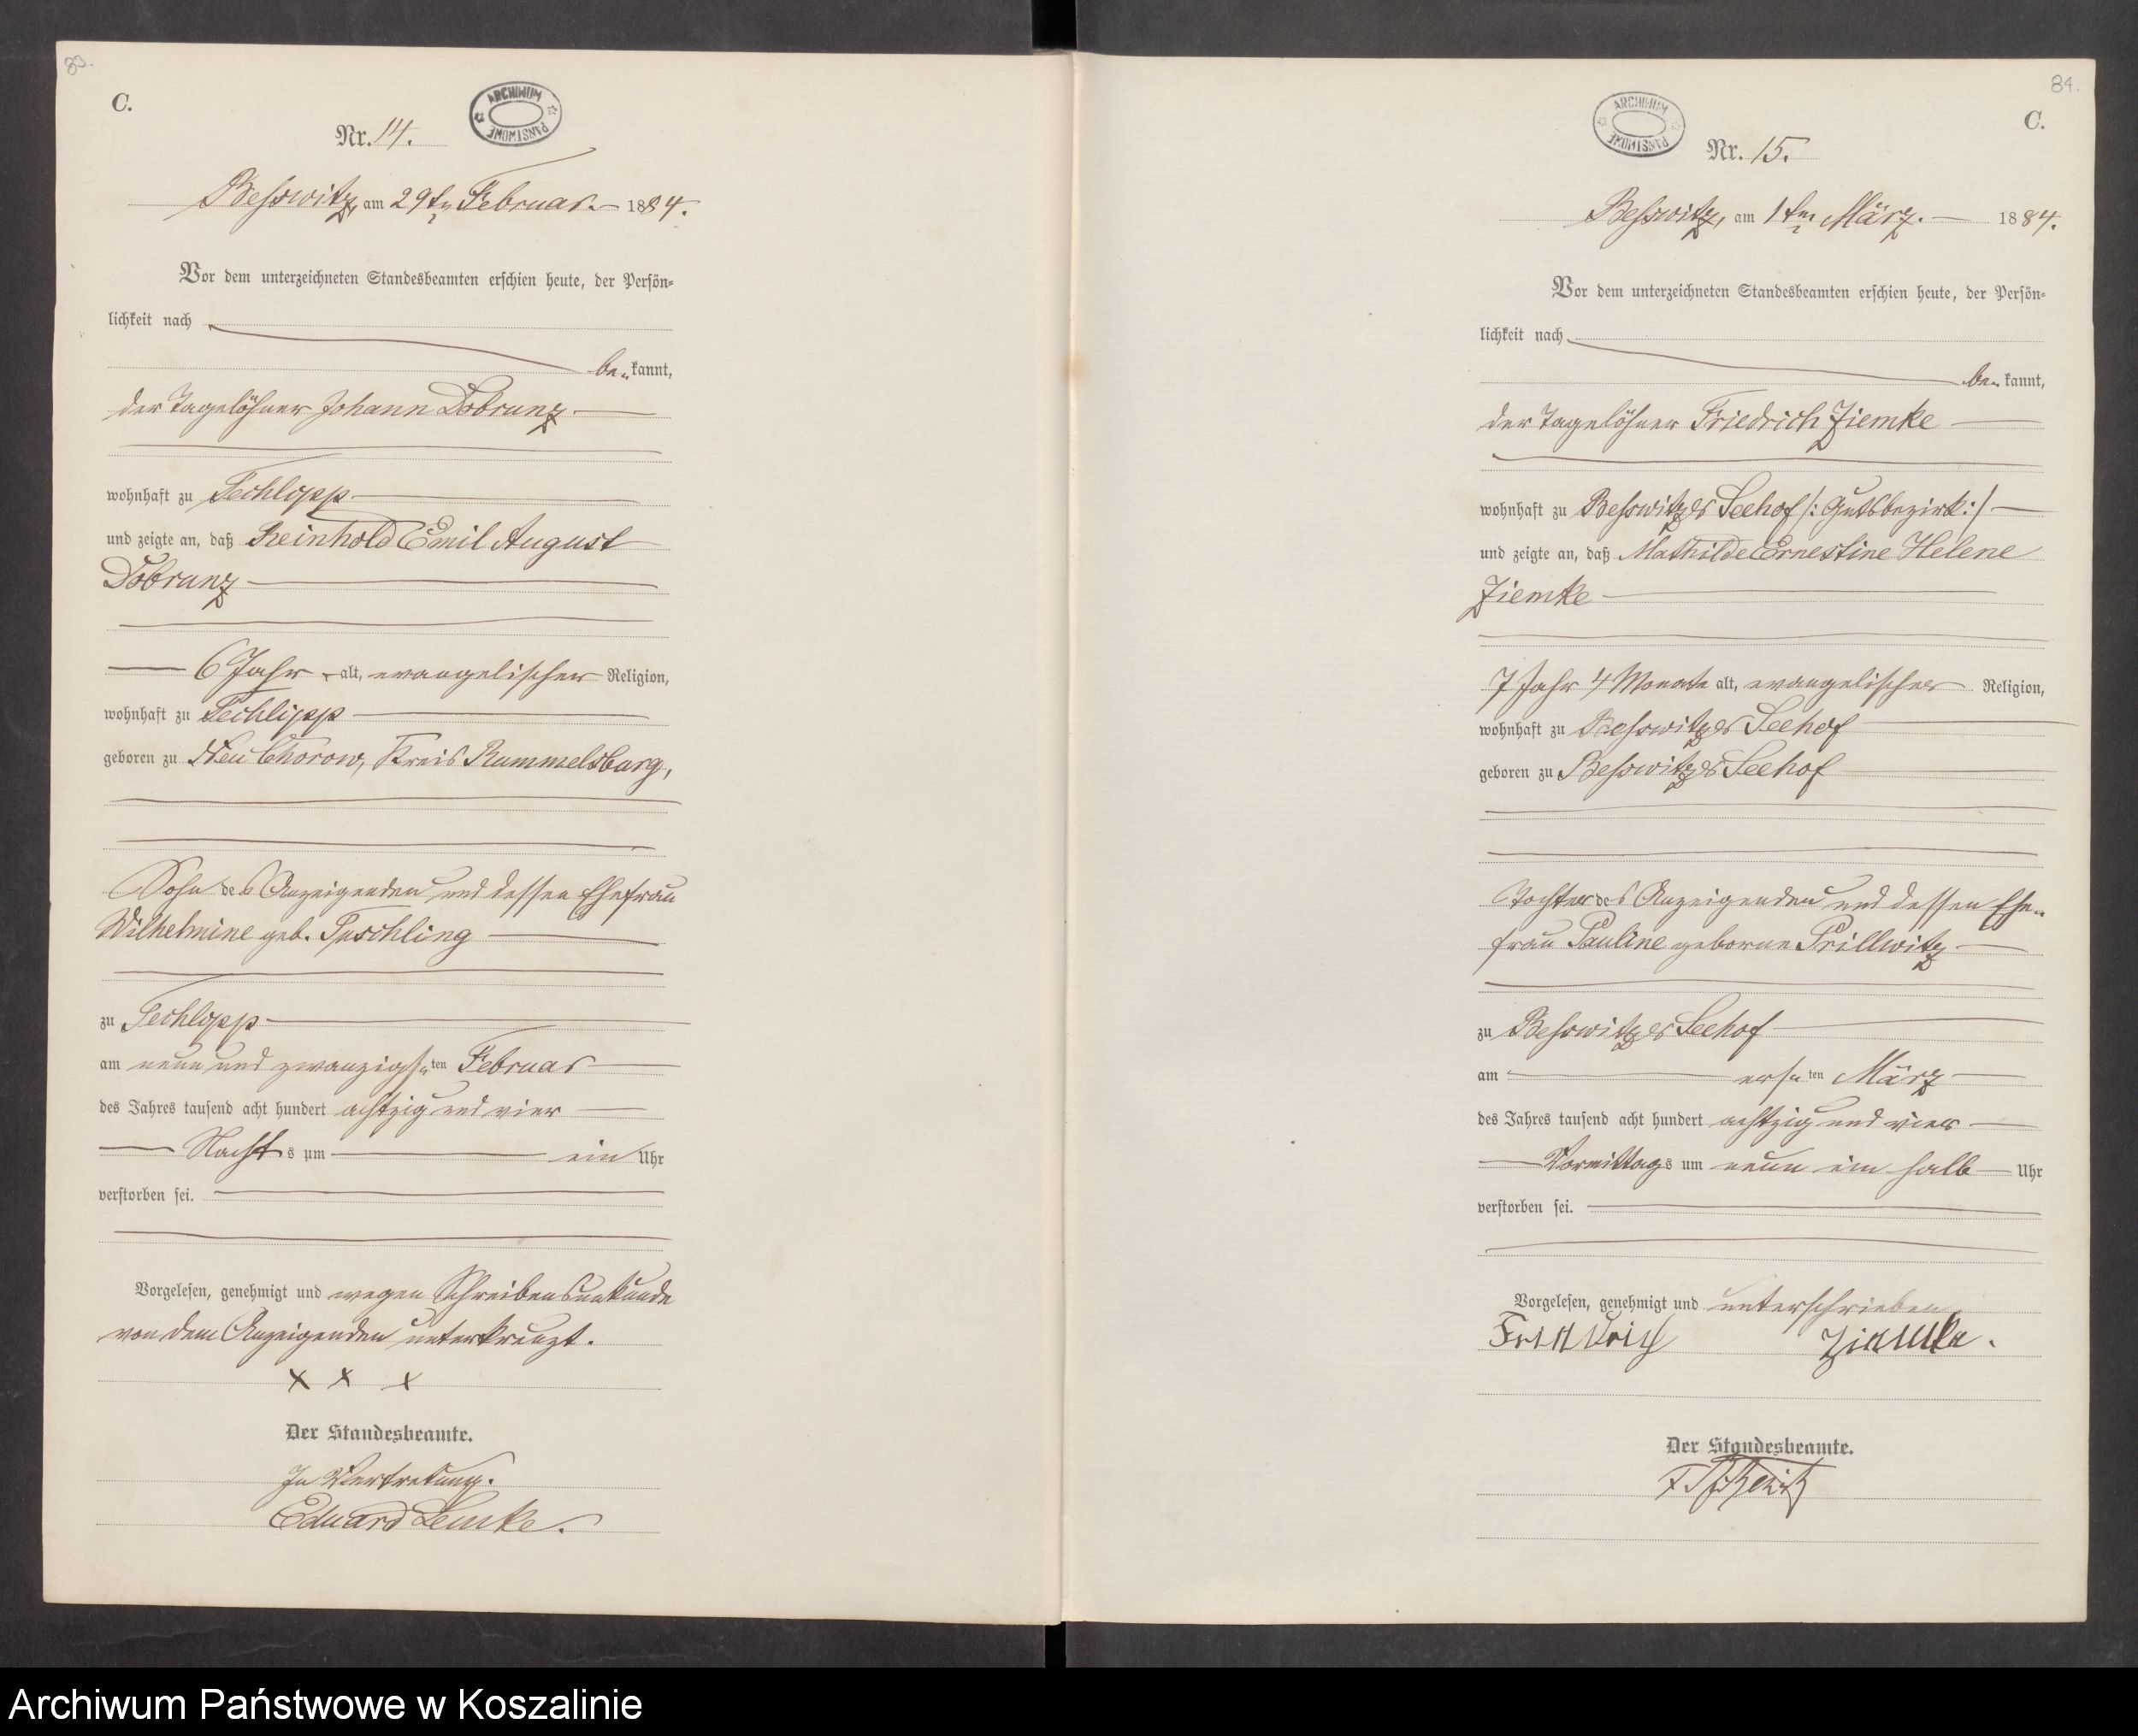 83.
C.
ARCHIWUM PAŃSTWOWE
Nr. 14.
Besswitz, am 29ten Februar. 1884.
Vor dem unterzeichneten Standesbeamten erschien heute, der Persön-
lichkeit nach
be- kannt,
der Tagelöhner Johann Dobrunz
wohnhaft zu Techlipp
und zeigte an, daß Reinhold Emil August
Dobrunz
6 Jahr alt, evangelischer Religion,
wohnhaft zu Techlipp
geboren zu Neu Chorow, Kreis Rummelsburg,
Sohn des Anzeigenden und dessen Ehefrau
Wilhelmine geb.
zu Techlipp
am neun und zwanzigsten Februar
des Jahres tausend acht hundert achtzig und vier
Nachts um ein Uhr
verstorben sei.
Vorgelesen, genehmigt und wegen Schreibensunkunde
von dem Anzeigenden unterkreuzt.
x x x
Der Standesbeamte.
In Vertretung.
Eduard Lemke.
84.
C.
ARCHIWUM PAŃSTWOWE
Nr. 15.
Besswitz, am 1ten März. 1884.
Vor dem unterzeichneten Standesbeamten erschien heute, der Persön-
lichkeit nach
be- kannt,
der Tagelöhner Friedrich Ziemke
wohnhaft zu Besswitzer Seehof /: Gutsbezirk :/
und zeigte an, daß Mathilde Ernestine Helene
Ziemke
7 Jahr 4 Monate alt, evangelischer Religion,
wohnhaft zu Besswitzer Seehof
geboren zu Besswitzer Seehof
Tochter des Anzeigenden und dessen Ehe-
frau Pauline geborne Prillwitz
zu Besswitzer Seehof
am ersten März
des Jahres tausend acht hundert achtzig und vier
Vormittags um neun ein halb Uhr
verstorben sei.
Vorgelesen, genehmigt und unterschrieben
Friedrich Ziemke.
Der Standesbeamte.
Archiwum Państwowe w Koszalinie